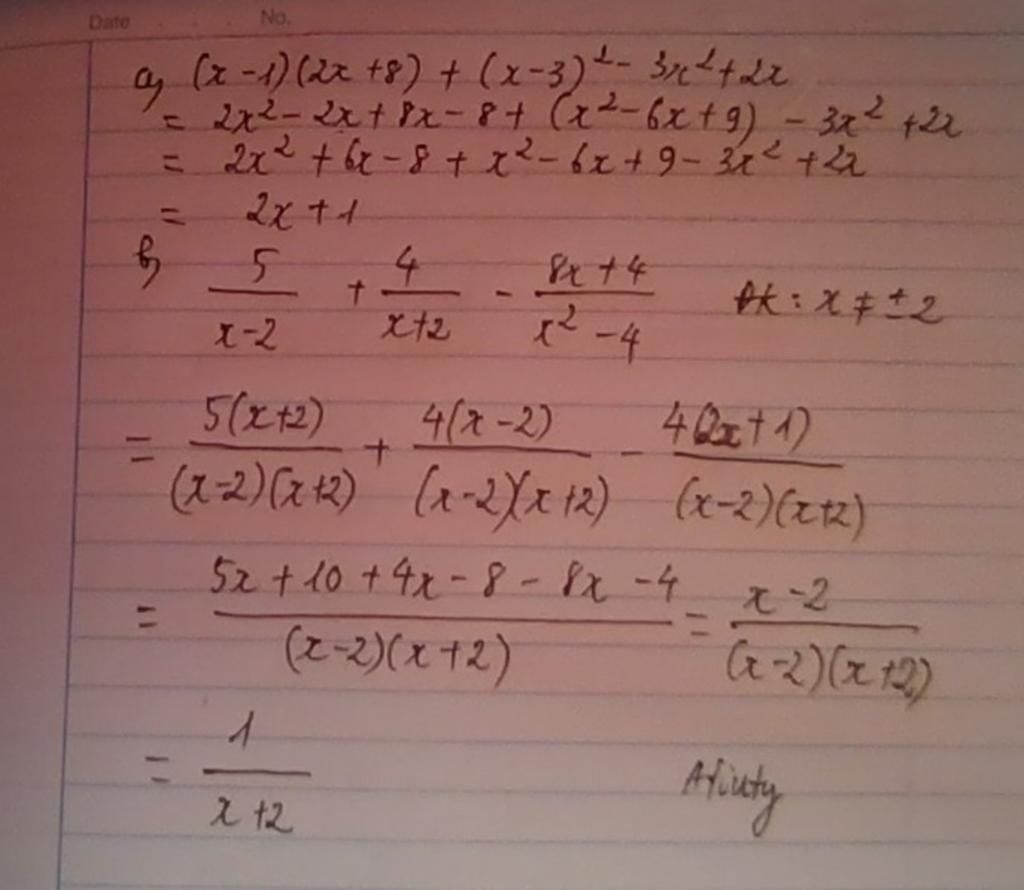 Date No.
a, (x-1)(2x+8) + (x-3)² - 3x² + 2x
= 2x² - 2x + 8x - 8 + (x² - 6x + 9) - 3x² + 2x
= 2x² + 6x - 8 + x² - 6x + 9 - 3x² + 2x
= 2x + 1
b, 5/(x-2) + 4/(x+2) - (8x+4)/(x²-4) ĐK: x ≠ ±2
= 5(x+2)/((x-2)(x+2)) + 4(x-2)/((x-2)(x+2)) - 4(2x+1)/((x-2)(x+2))
= (5x + 10 + 4x - 8 - 8x - 4)/((x-2)(x+2)) = (x-2)/((x-2)(x+2))
= 1/(x+2)